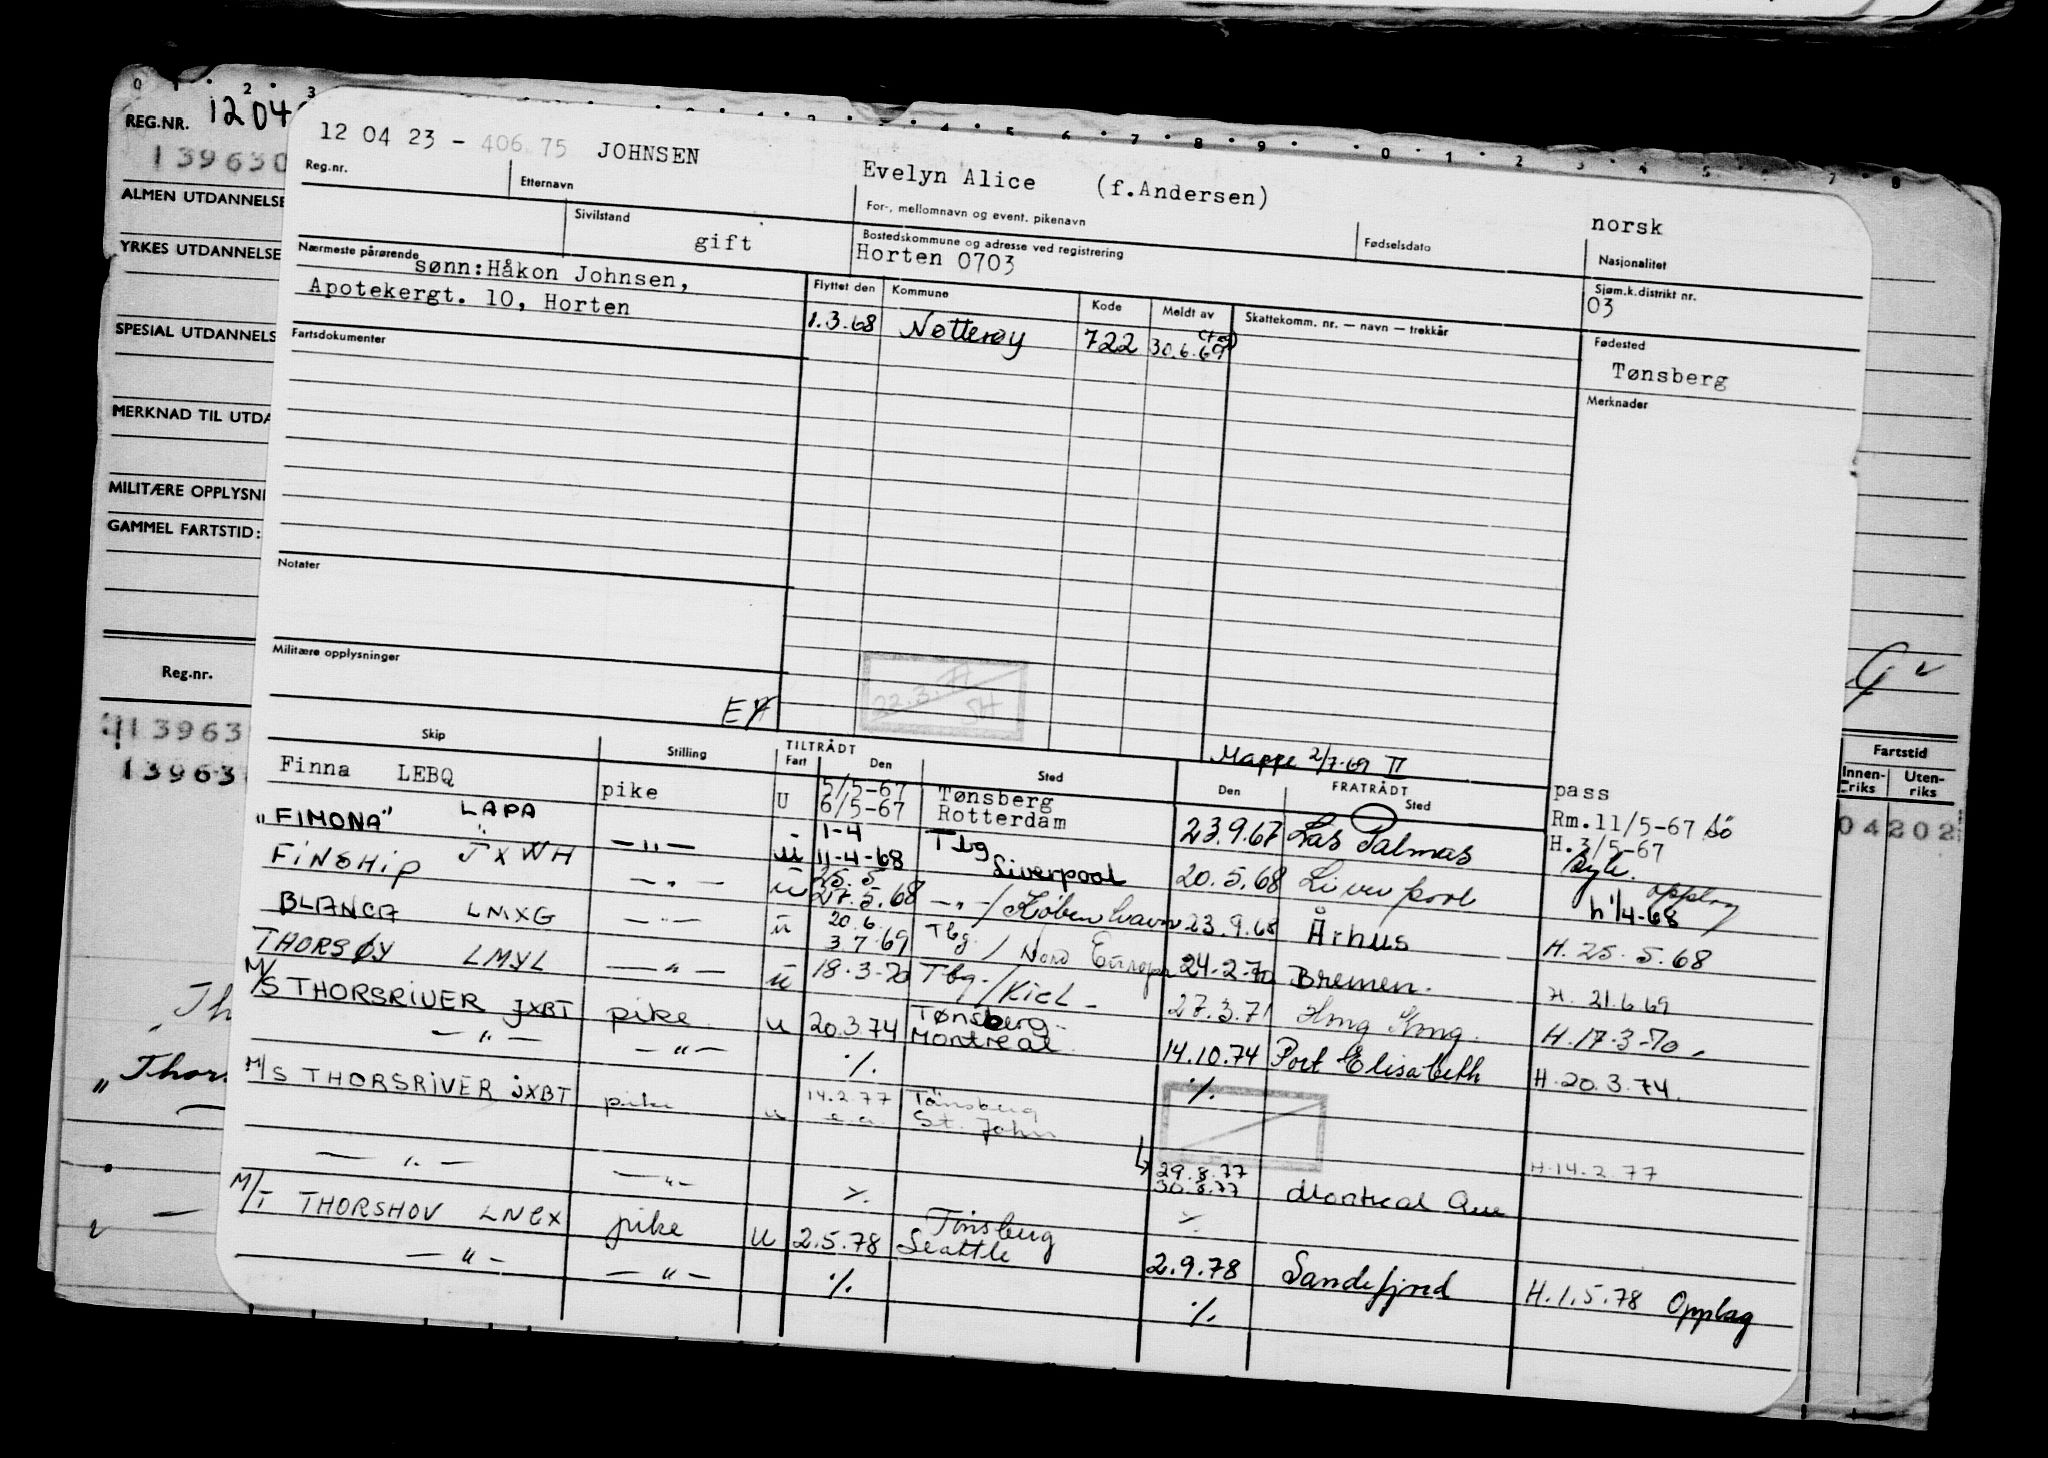 0 1 2 3 4 5 6 7 8 9 0 1 2 3 4 5 7 8
REG.NR. 1204
139630
ALMEN UTDANNELSE
YRKES UTDANNELSE
SPESIAL UTDANNELS
MERKNAD TIL UTDA
MILITÆRE OPPLYSNI
GAMMEL FARTSTID:
Reg.nr.
13963
13963
12 04 23 - 406.75 JOHNSEN Evelyn Alice (f.Andersen) norsk
Reg.nr. Etternavn For-, mellomnavn og event. pikenavn Fødselsdato Nasjonalitet
Sivilstand gift Bostedskommune og adresse ved registrering Sjøm.k.distrikt nr.
Horten 0703 03
Nærmeste pårørende sønn:Håkon Johnsen,
Apotekergt. 10, Horten
Flyttet den Kommune Kode Meldt av Skattekomm. nr. — navn — trekkår Fødested
1.3.68 Nøtterøy 722 30.6.69 Tønsberg
Fartsdokumenter
Merknader
Notater
Militære opplysninger
22.3.71
SH
Mappe 2/7-69 II
Skip Stilling TILTRÅDT FRATRÅDT
Fart Den Sted Den Sted
Finna LEBQ pike U 5/5-67 Tønsberg 23.9.67 Las Palmas pass
6/5-67 Rotterdam Rm.11/5-67
H.3/5-67
"FIMONA" LAPA — " — u 1-4 Tbg 20.5.68 Liverpool
11-4-68 Liverpool opplag
h 1/4-68
FINSHIP JXWH — " — u 25.5 — " — / København 23.9.68 Århus H. 25.5.68
27.5.68
BLANCA LMXG — " — u 20.6. Tbg. / Nord Europa 24-2-70 Bremen. H. 21.6.69
3.7.69
THORSØY LMYL — " — u 18-3-70 Tbg. / Kiel - 27.3.71 Hong Kong. H.17-3-70
M/S THORSRIVER JXBT pike u 20.3.74 Tønsberg- 14.10.74 Port Elisabeth H.20.3.74.
Montreal
— " — — " — ./. ./.
M/S THORSRIVER JXBT pike u 14.2.77 Tønsberg H.14.2.77
St. John
— " — — " — ./. 29.8.77 Montreal Que
30.8.77
./.
M/T THORSHOV LNCX pike u 2.5.78 Tønsberg 2.9.78 Sandefjord H.1.5.78 Opplag
Seattle
— " — — " — ./. ./.
Fartstid
Innen-riks Uten-riks
04202